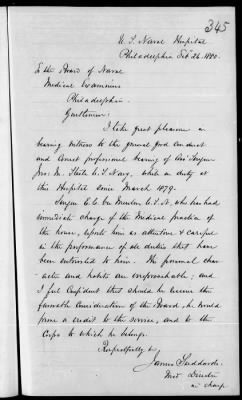 345
U. S. Naval Hospital
Philadelphia Feb 26 1880.
To the Board of Naval
Medical Examiners
Philadelphia.
Gentlemen:
I take great pleasure in
bearing witness to the general good conduct
and correct professional bearing of Ass Surgeon
Jno. M. Steele U. S. Navy, while on duty at
this Hospital since March 1879.
Surgeon C. C. Van Meulen, U. S. N. who has had
immediate charge of the Medical practice of
the house, reports him as attentive & careful
in the performance of all duties that have
been entrusted to him. His personal char-
acter and habits are irreproachable; and
I feel confident that should he secure the
favorable consideration of the Board, he would
prove a credit to the service, and to the
Corps to which he belongs.
Respectfully &c
James Suddards.
Med. Director
in charge